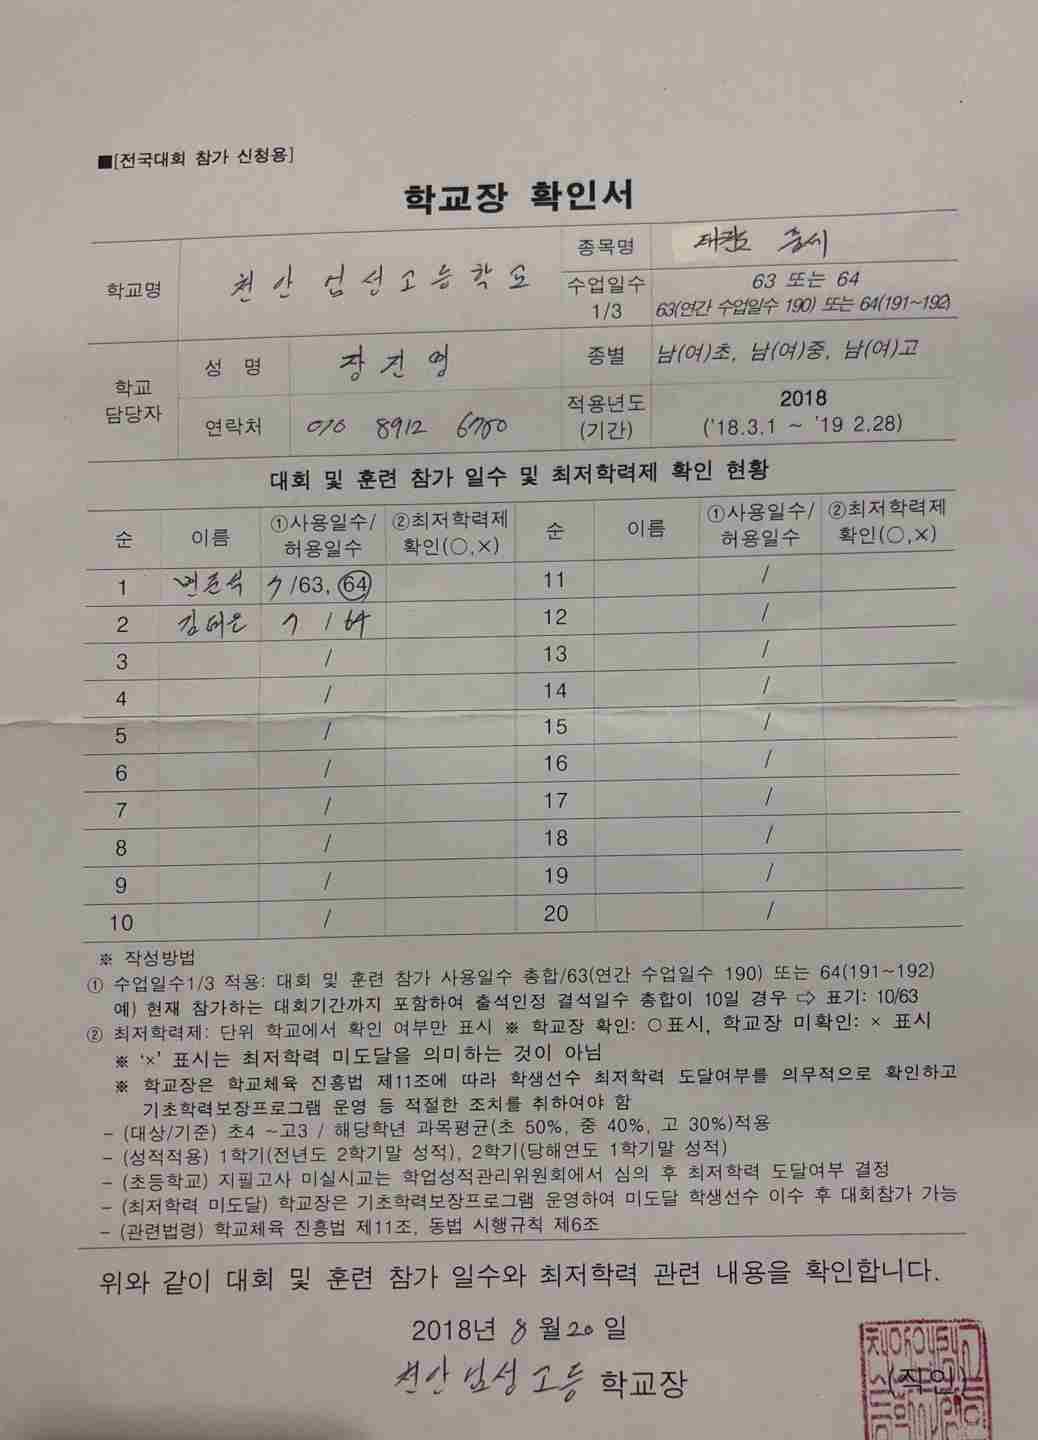 ■[전국대회 참가 신청용]
학교장 확인서
학교명 천안 업성고등학교
종목명 태권도 품새
수업일수 1/3 63 또는 64
63(연간 수업일수 190) 또는 64(191~192)
학교 담당자 성 명 장건영
종별 남(여)초, 남(여)중, 남(여)고
연락처 010 8912 6780
적용년도 (기간) 2018
('18.3.1 ~ '19 2.28)
대회 및 훈련 참가 일수 및 최저학력제 확인 현황
순 이름 ①사용일수/허용일수 ②최저학력제 확인(○,×) 순 이름 ①사용일수/허용일수 ②최저학력제 확인(○,×)
1 7/63, 64 11 /
2 김태은 7 / 64 12 /
3 / 13 /
4 / 14 /
5 / 15 /
6 / 16 /
7 / 17 /
8 / 18 /
9 / 19 /
10 / 20 /
※ 작성방법
① 수업일수1/3 적용: 대회 및 훈련 참가 사용일수 총합/63(연간 수업일수 190) 또는 64(191~192)
예) 현재 참가하는 대회기간까지 포함하여 출석인정 결석일수 총합이 10일 경우 ⇨ 표기: 10/63
② 최저학력제: 단위 학교에서 확인 여부만 표시 ※ 학교장 확인: ○표시, 학교장 미확인: × 표시
※ '×' 표시는 최저학력 미도달을 의미하는 것이 아님
※ 학교장은 학교체육 진흥법 제11조에 따라 학생선수 최저학력 도달여부를 의무적으로 확인하고
기초학력보장프로그램 운영 등 적절한 조치를 취하여야 함
- (대상/기준) 초4 ~고3 / 해당학년 과목평균(초 50%, 중 40%, 고 30%)적용
- (성적적용) 1학기(전년도 2학기말 성적), 2학기(당해연도 1학기말 성적)
- (초등학교) 지필고사 미실시교는 학업성적관리위원회에서 심의 후 최저학력 도달여부 결정
- (최저학력 미도달) 학교장은 기초학력보장프로그램 운영하여 미도달 학생선수 이수 후 대회참가 가능
- (관련법령) 학교체육 진흥법 제11조, 동법 시행규칙 제6조
위와 같이 대회 및 훈련 참가 일수와 최저학력 관련 내용을 확인합니다.
2018년 8월 20일
천안업성고등 학교장 (직인)